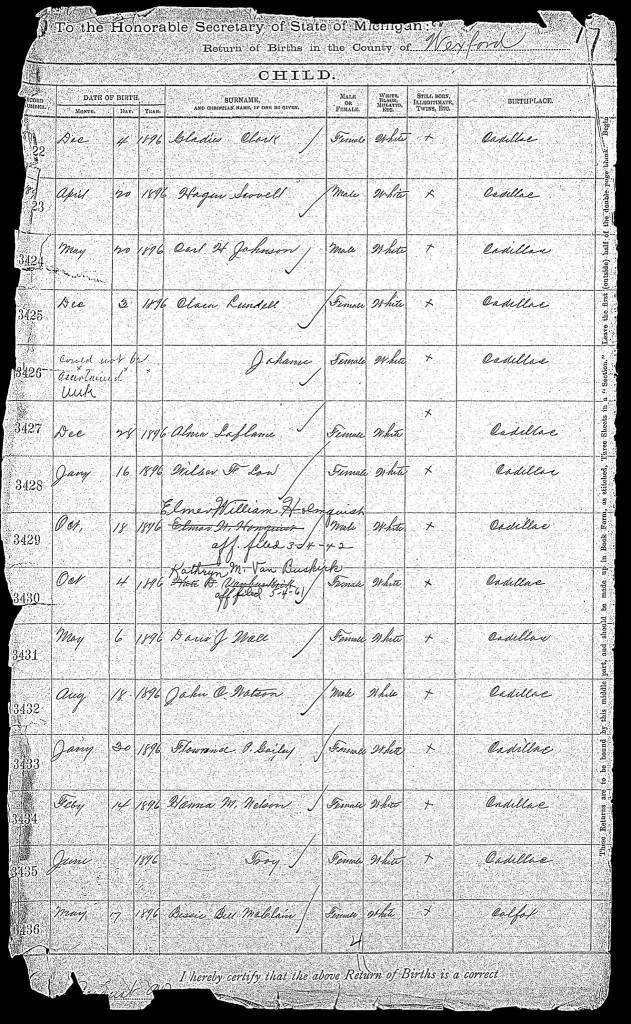 To the Honorable Secretary of State of Michigan:
Return of Births in the County of Wexford
17
CHILD.
RECORD NUMBER. DATE OF BIRTH. MONTH. DAY. YEAR. SURNAME, AND CHRISTIAN NAME, IF ONE BE GIVEN. MALE OR FEMALE. WHITE, BLACK, MULATTO, ETC. STILL BORN, ILLEGITIMATE, TWINS, ETC. BIRTHPLACE.
22 Dec 4 1896 Gladis Clark Female White + Cadillac
23 April 20 1896 Male White + Cadillac
3424 May 20 1896 Carl H Johnson Male White + Cadillac
3425 Dec 3 1896 Clara Lundell Female White + Cadillac
3426 could not be Johann Female White + Cadillac
ascertained " "
Unk
3427 Dec 28 1896 Alma Laflame Female White + Cadillac
3428 Jany 16 1896 Wilber F Low Female White + Cadillac
Elmer William Holmquish
3429 Oct, 18 1896 Elmer W. Male White + Cadillac
aff. filed 3-4-42
Kathryn M. Van Buskirk
3430 Oct 4 1896 Vanbuskirk Female White + Cadillac
aff filed 5-4-61
3431 May 6 1896 Doris J Wall Female White + Cadillac
3432 Aug 18 1896 John O. Watson Male White + Cadillac
3433 Jany 20 1896 Flowrence P. Gailey Female White + Cadillac
3434 Feby 14 1896 Hanna M. Nelson Female White + Cadillac
3435 June 1896 Troy Female White + Cadillac
3436 May 7 1896 Bessie Bell McClain Female White + Colfax
4
I hereby certify that the above Return of Births is a correct
These Returns are to be bound by this middle part, and should be made up in Book Form, as stitched, Three Sheets in a "Section." Leave the first (outside) half of the double page blank. Begin